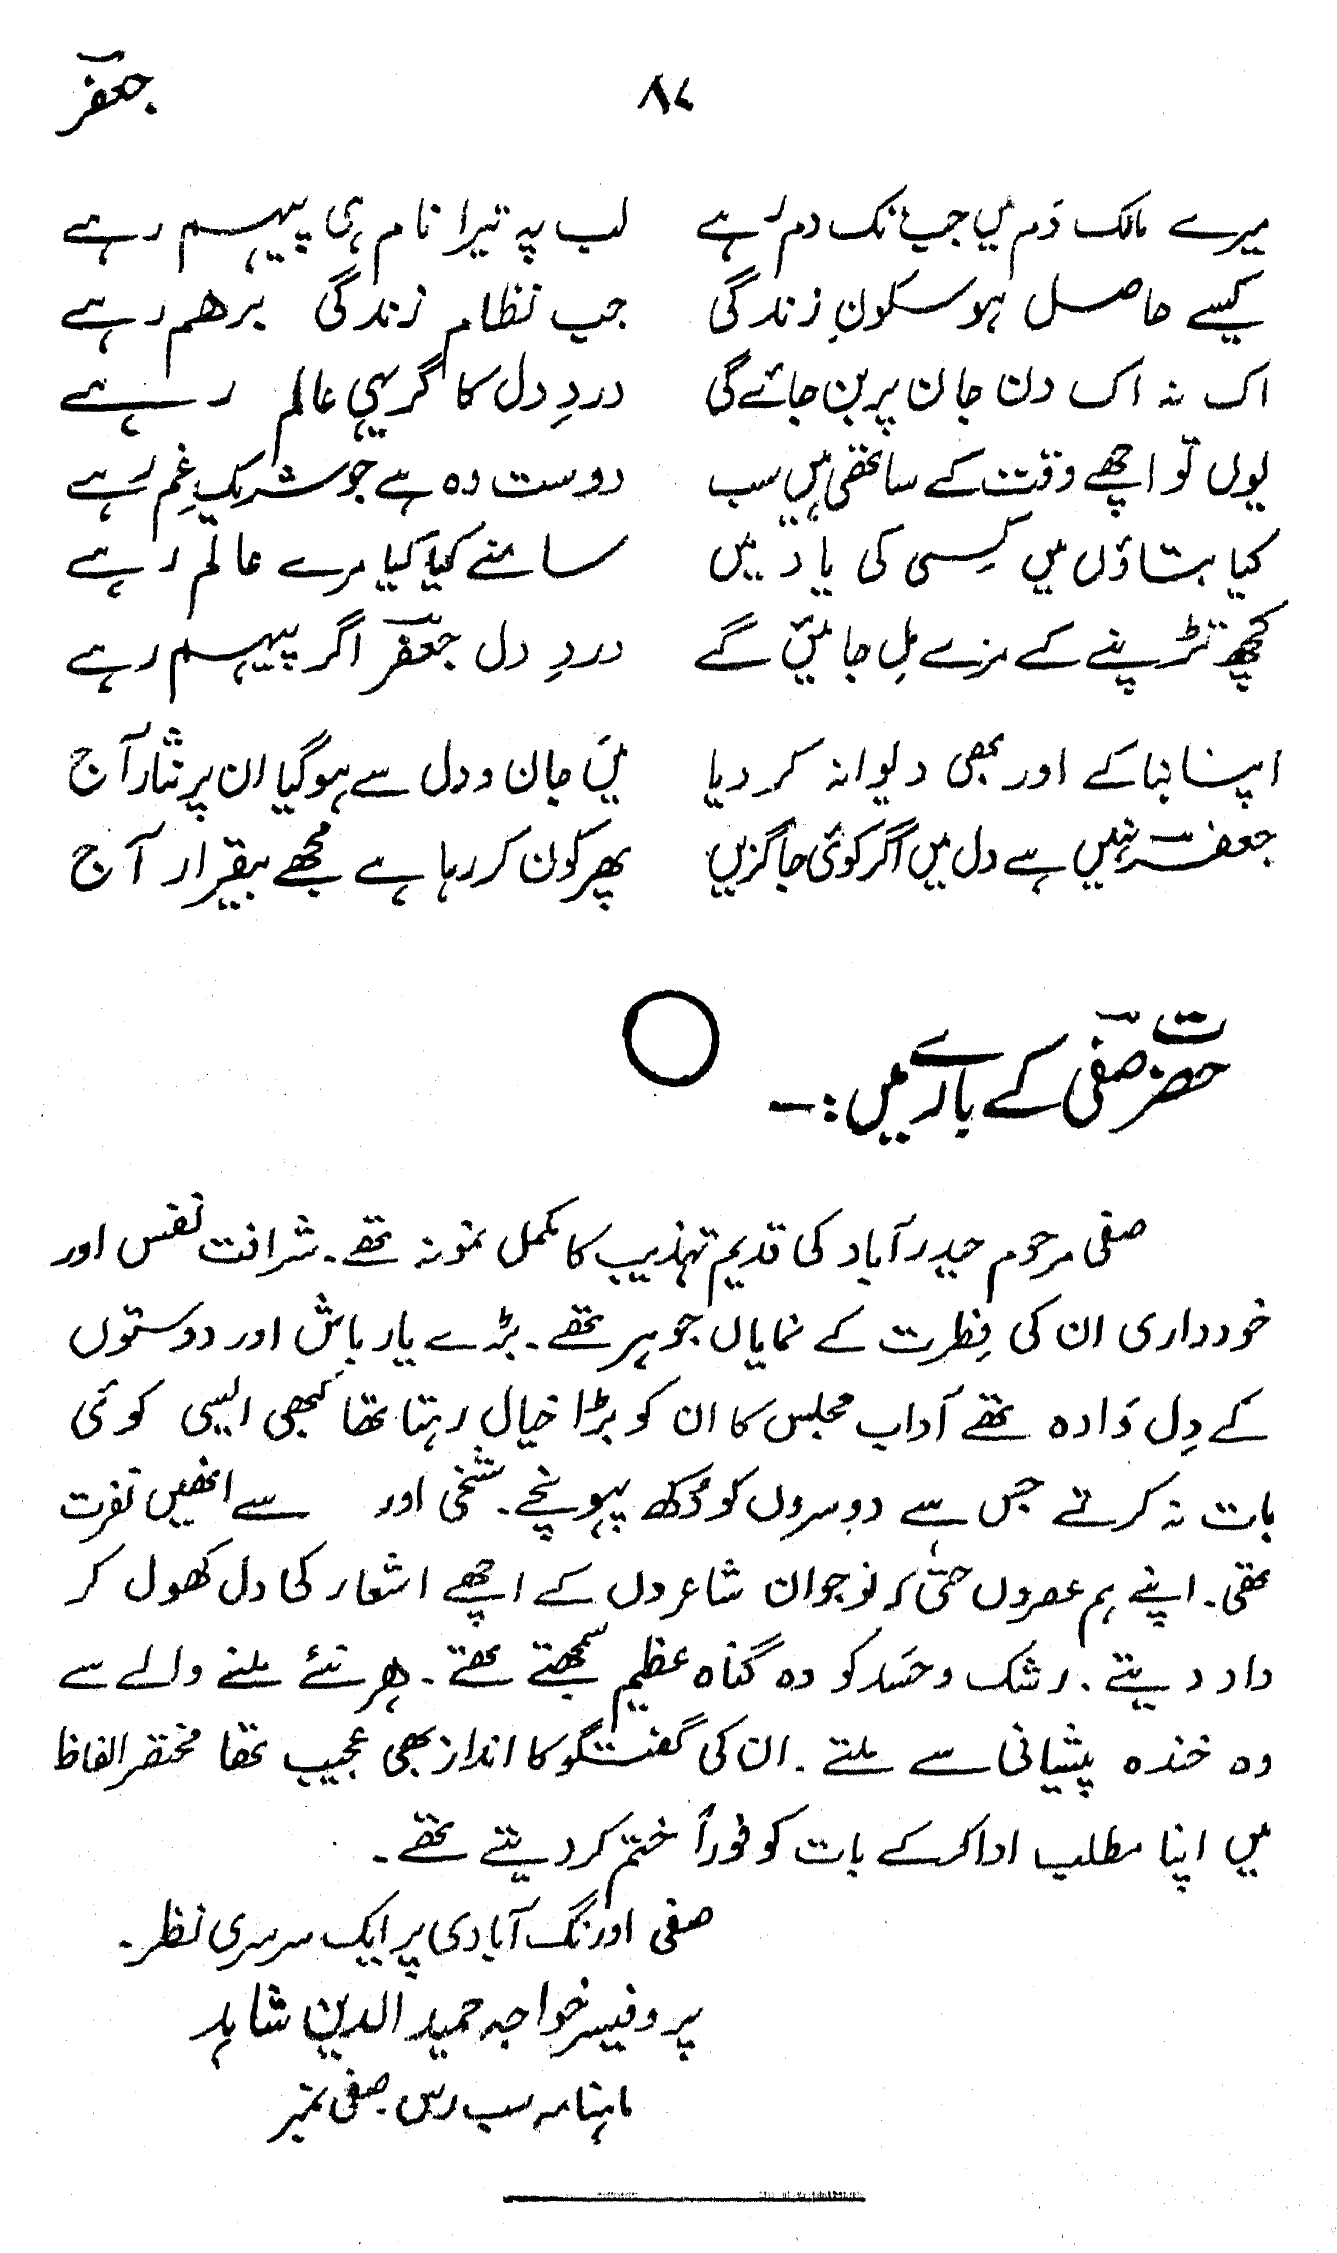 جعفرؔ
۸۷
میرے مالک دَم میں جب تک دم رہے لب پہ تیرا نام ہی پیہم رہے
کیسے حاصل ہو سکونِ زندگی جب نظام زندگی برھم رہے
اک نہ اک دن جان پر بن جائے گی دردِ دل کا گر یہی عالم رہے
یوں تو اچھے وقت کے ساتھی ہیں سب دوست وہ ہے جو شریکِ غم رہے
کیا بتاؤں میں کِسی کی یاد میں سامنے کیا کیا مرے عالم رہے
کچھ تڑپنے کے مزے مِل جائیں گے دردِ دل جعفرؔ اگر پیہم رہے
اپنا بنا کے اور بھی دیوانہ کر دیا میں جان و دل سے ہوگیا ان پر نثار آج
جعفرؔ نہیں ہے دل میں اگر کوئی جاگزیں پھر کون کر رہا ہے مجھے بیقرار آج
حضرت صفیؔ کے بارے میں :-
صفی مرحوم حیدرآباد کی قدیم تہذیب کا مکمل نمونہ تھے۔ شرافت نفس اور
خودداری ان کی فِطرت کے نمایاں جوہر تھے۔ بڑے یار باش اور دوستوں
کے دِل دَادہ تھے آداب مجلس کا ان کو بڑا خیال رہتا تھا کبھی ایسی کوئی
بات نہ کرتے جس سے دوسروں کو دُکھ پہونچے۔ شیخی اور سے انھیں نفرت
تھی۔ اپنے ہم عصروں حتیٰ کہ نوجوان شاعروں کے اچھے اشعار کی دل کھول کر
داد دیتے۔ رشک و حَسَد کو وہ گناہ عظیم سمجھتے تھے۔ ھر نئے ملنے والے سے
وہ خندہ پیشانی سے ملتے۔ ان کی گفتگو کا انداز بھی عجیب تھا مختصر الفاظ
میں اپنا مطلب ادا کر کے بات کو فوراً ختم کر دیتے تھے۔
صفی اورنگ آبادی پر ایک سرسری نظر۔
پروفیسر خواجہ حمید الدین شاہد
ماہنامہ سب رس۔ صفی نمبر